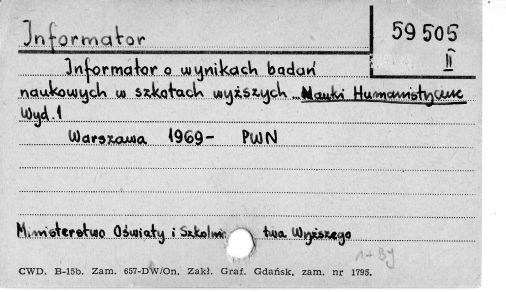 Informator
59 505
II
Informator o wynikach badań
naukowych w szkołach wyższych Nauki Humanistyczne
Wyd. 1
Warszawa 1969- PWN
Ministerstwo Oświaty i Szkolni twa Wyższego
CWD. B-15b. Zam. 657-DW/On. Zakł. Graf. Gdańsk, zam. nr 1795.